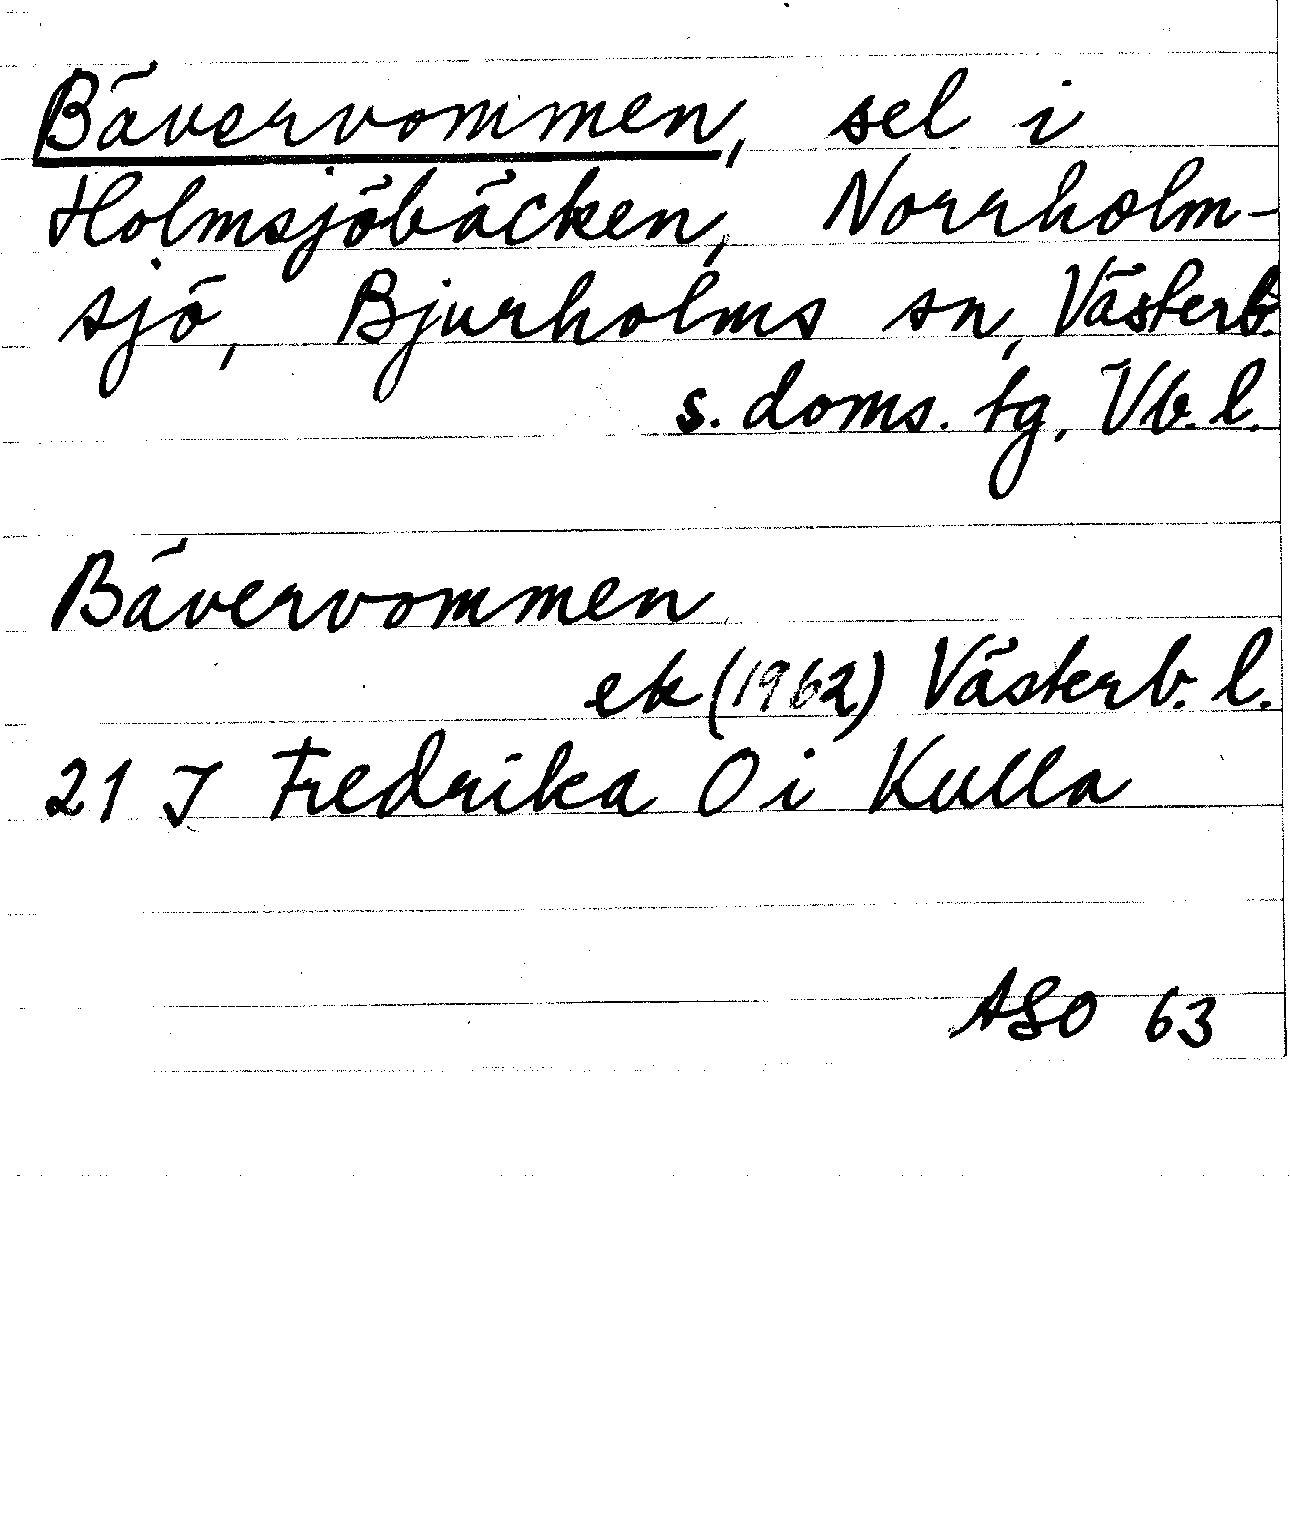 Bävervommen, sel i
Holmsjöbäcken, Norrholm-
sjö, Bjurholms sn, Västerb.
s. doms. tg, Vb. l.
Bävervommen
ek (1962) Västerb. l.
21 J Fredrika O i Kulla
ASO 63